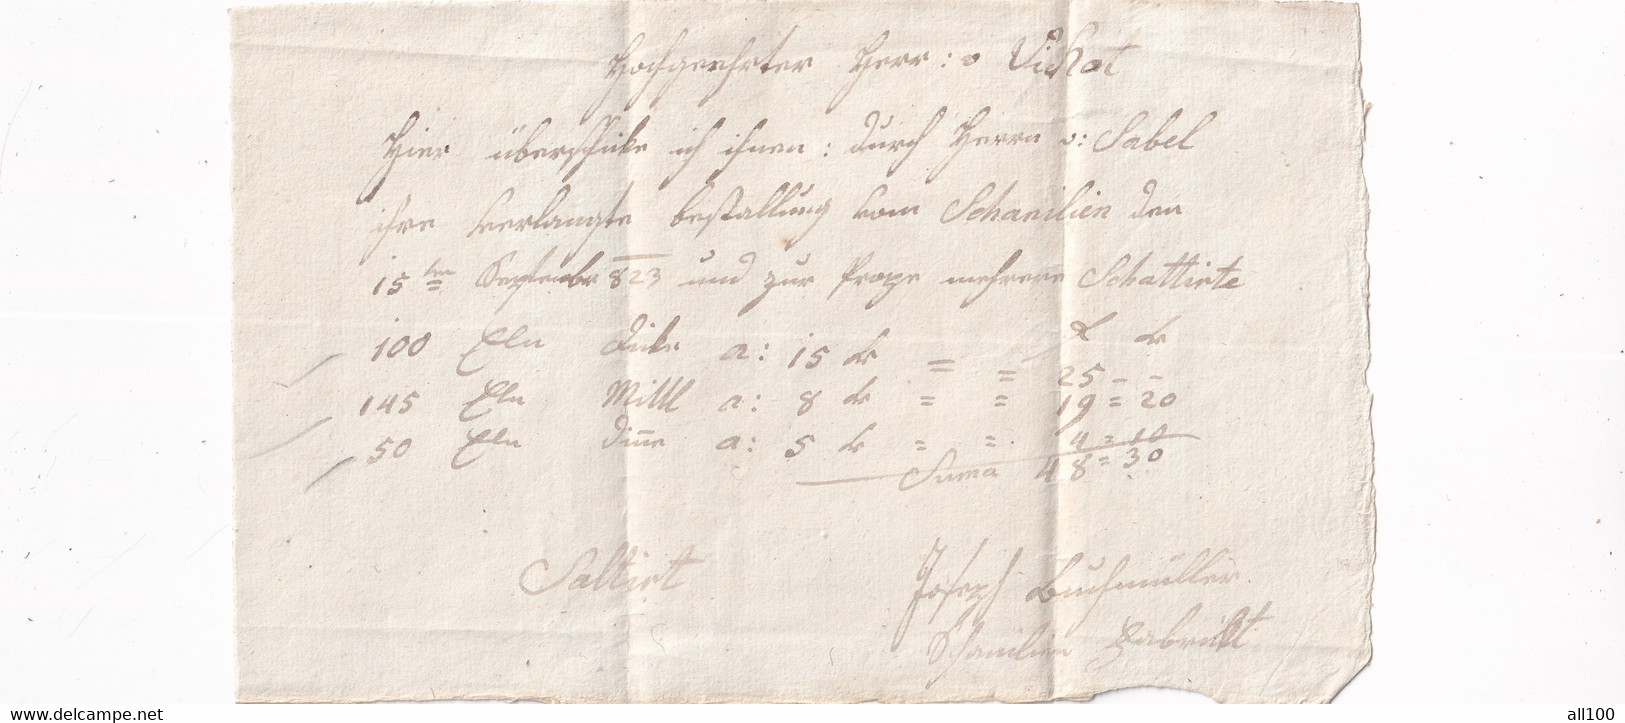 Hochgeehrter Herr: v Vichot
Hier überschicke ich ihnen: durch Herrn v: Sabel
ihre verlangte bestallung vom Schanilien den
15ten Septembr 823 und zur Prope mehrere Schattirte
100 Eln dicke a: 15 kr = = 25 - -
145 Eln Mittl a: 8 kr = = 19 = 20
50 Eln dine a: 5 kr = = 4 = 10
Suma 48 = 30
Saltirt
Joseph Buchmüller
Schanilien Fabrikt
www.delcampe.net
all100